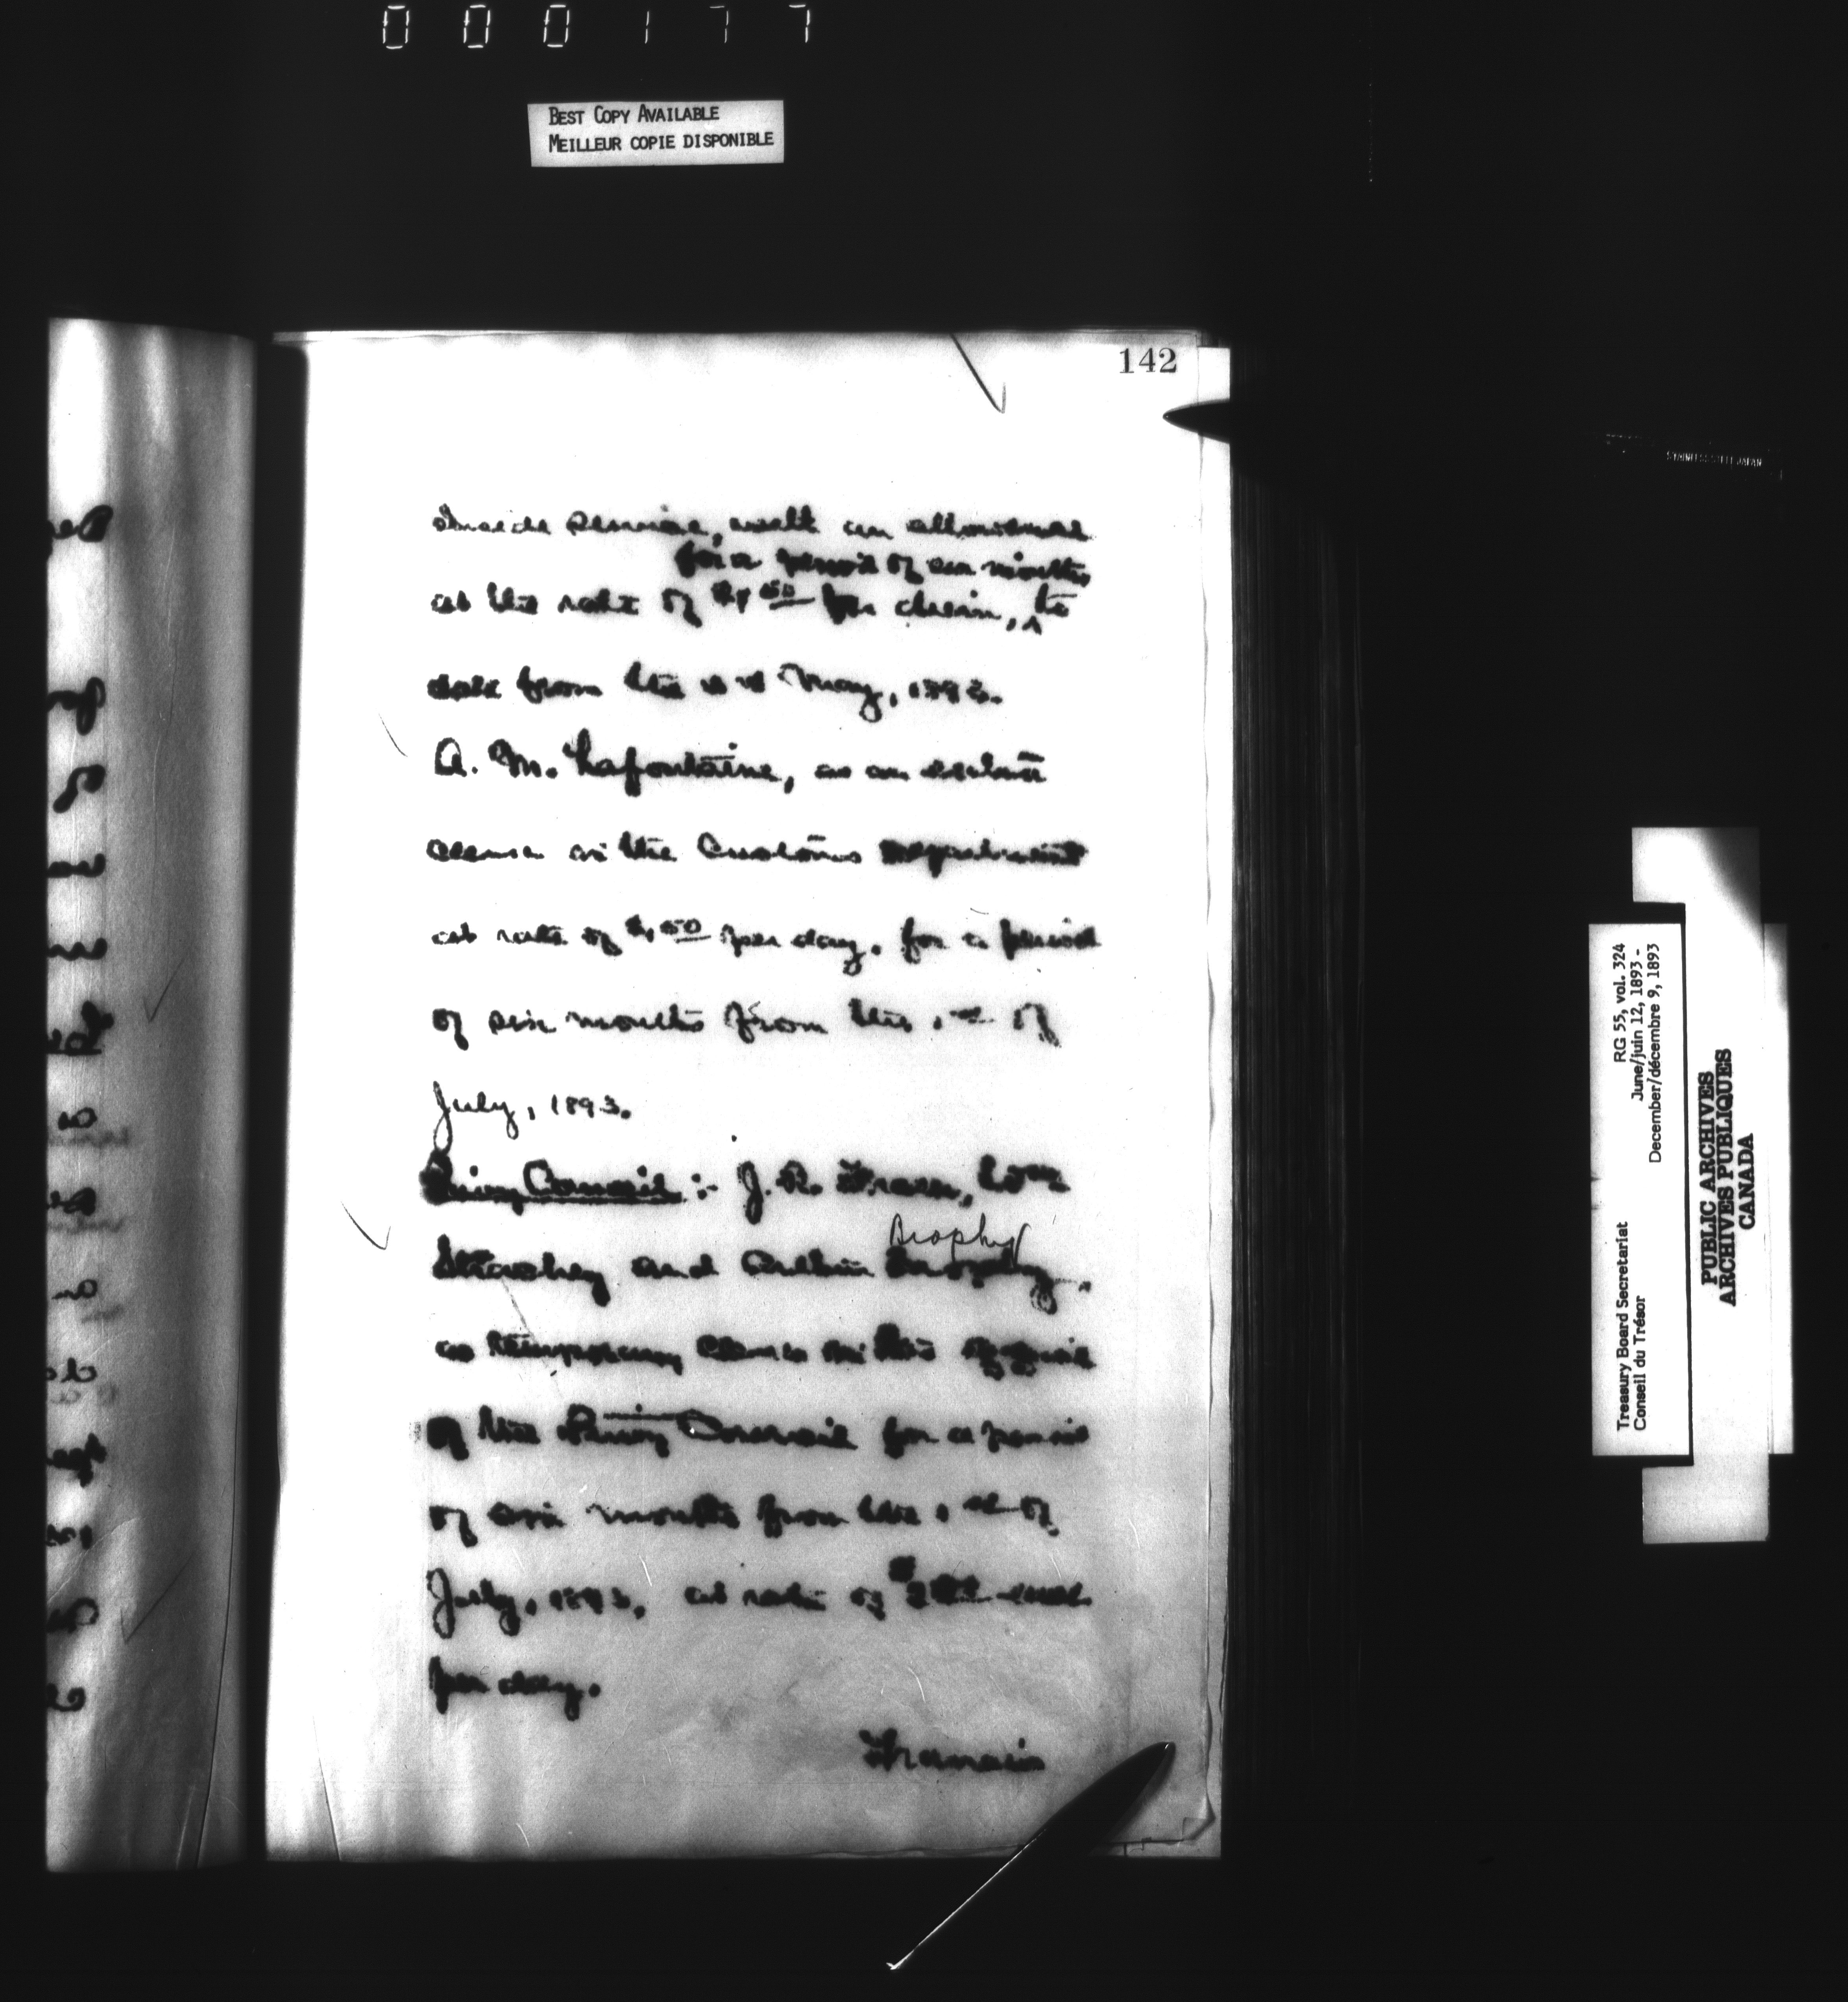 000177
BEST COPY AVAILABLE
MEILLEUR COPIE DISPONIBLE
142
Inside Service, with an
for a period of six months
at the rate of $1.50 per diem, ^ to
date from the May, 1893.
A. M. Lafontaine, as an
in the Customs Department
at rate of $1.50 per day. for a period
of six months from the 1st of
July, 1893.
Privy Council :- J. R.
Brophy
and Arthur Brophy,
as temporary clerks in the
of the Privy Council for a period
of six months from the 1st of
July, 1893, at rate of each
per day.
STAINLESS STEEL JAPAN
Treasury Board Secretariat RG 55, vol. 324
Conseil du Trésor June/juin 12, 1893 -
December/décembre 9, 1893
PUBLIC ARCHIVES
ARCHIVES PUBLIQUES
CANADA